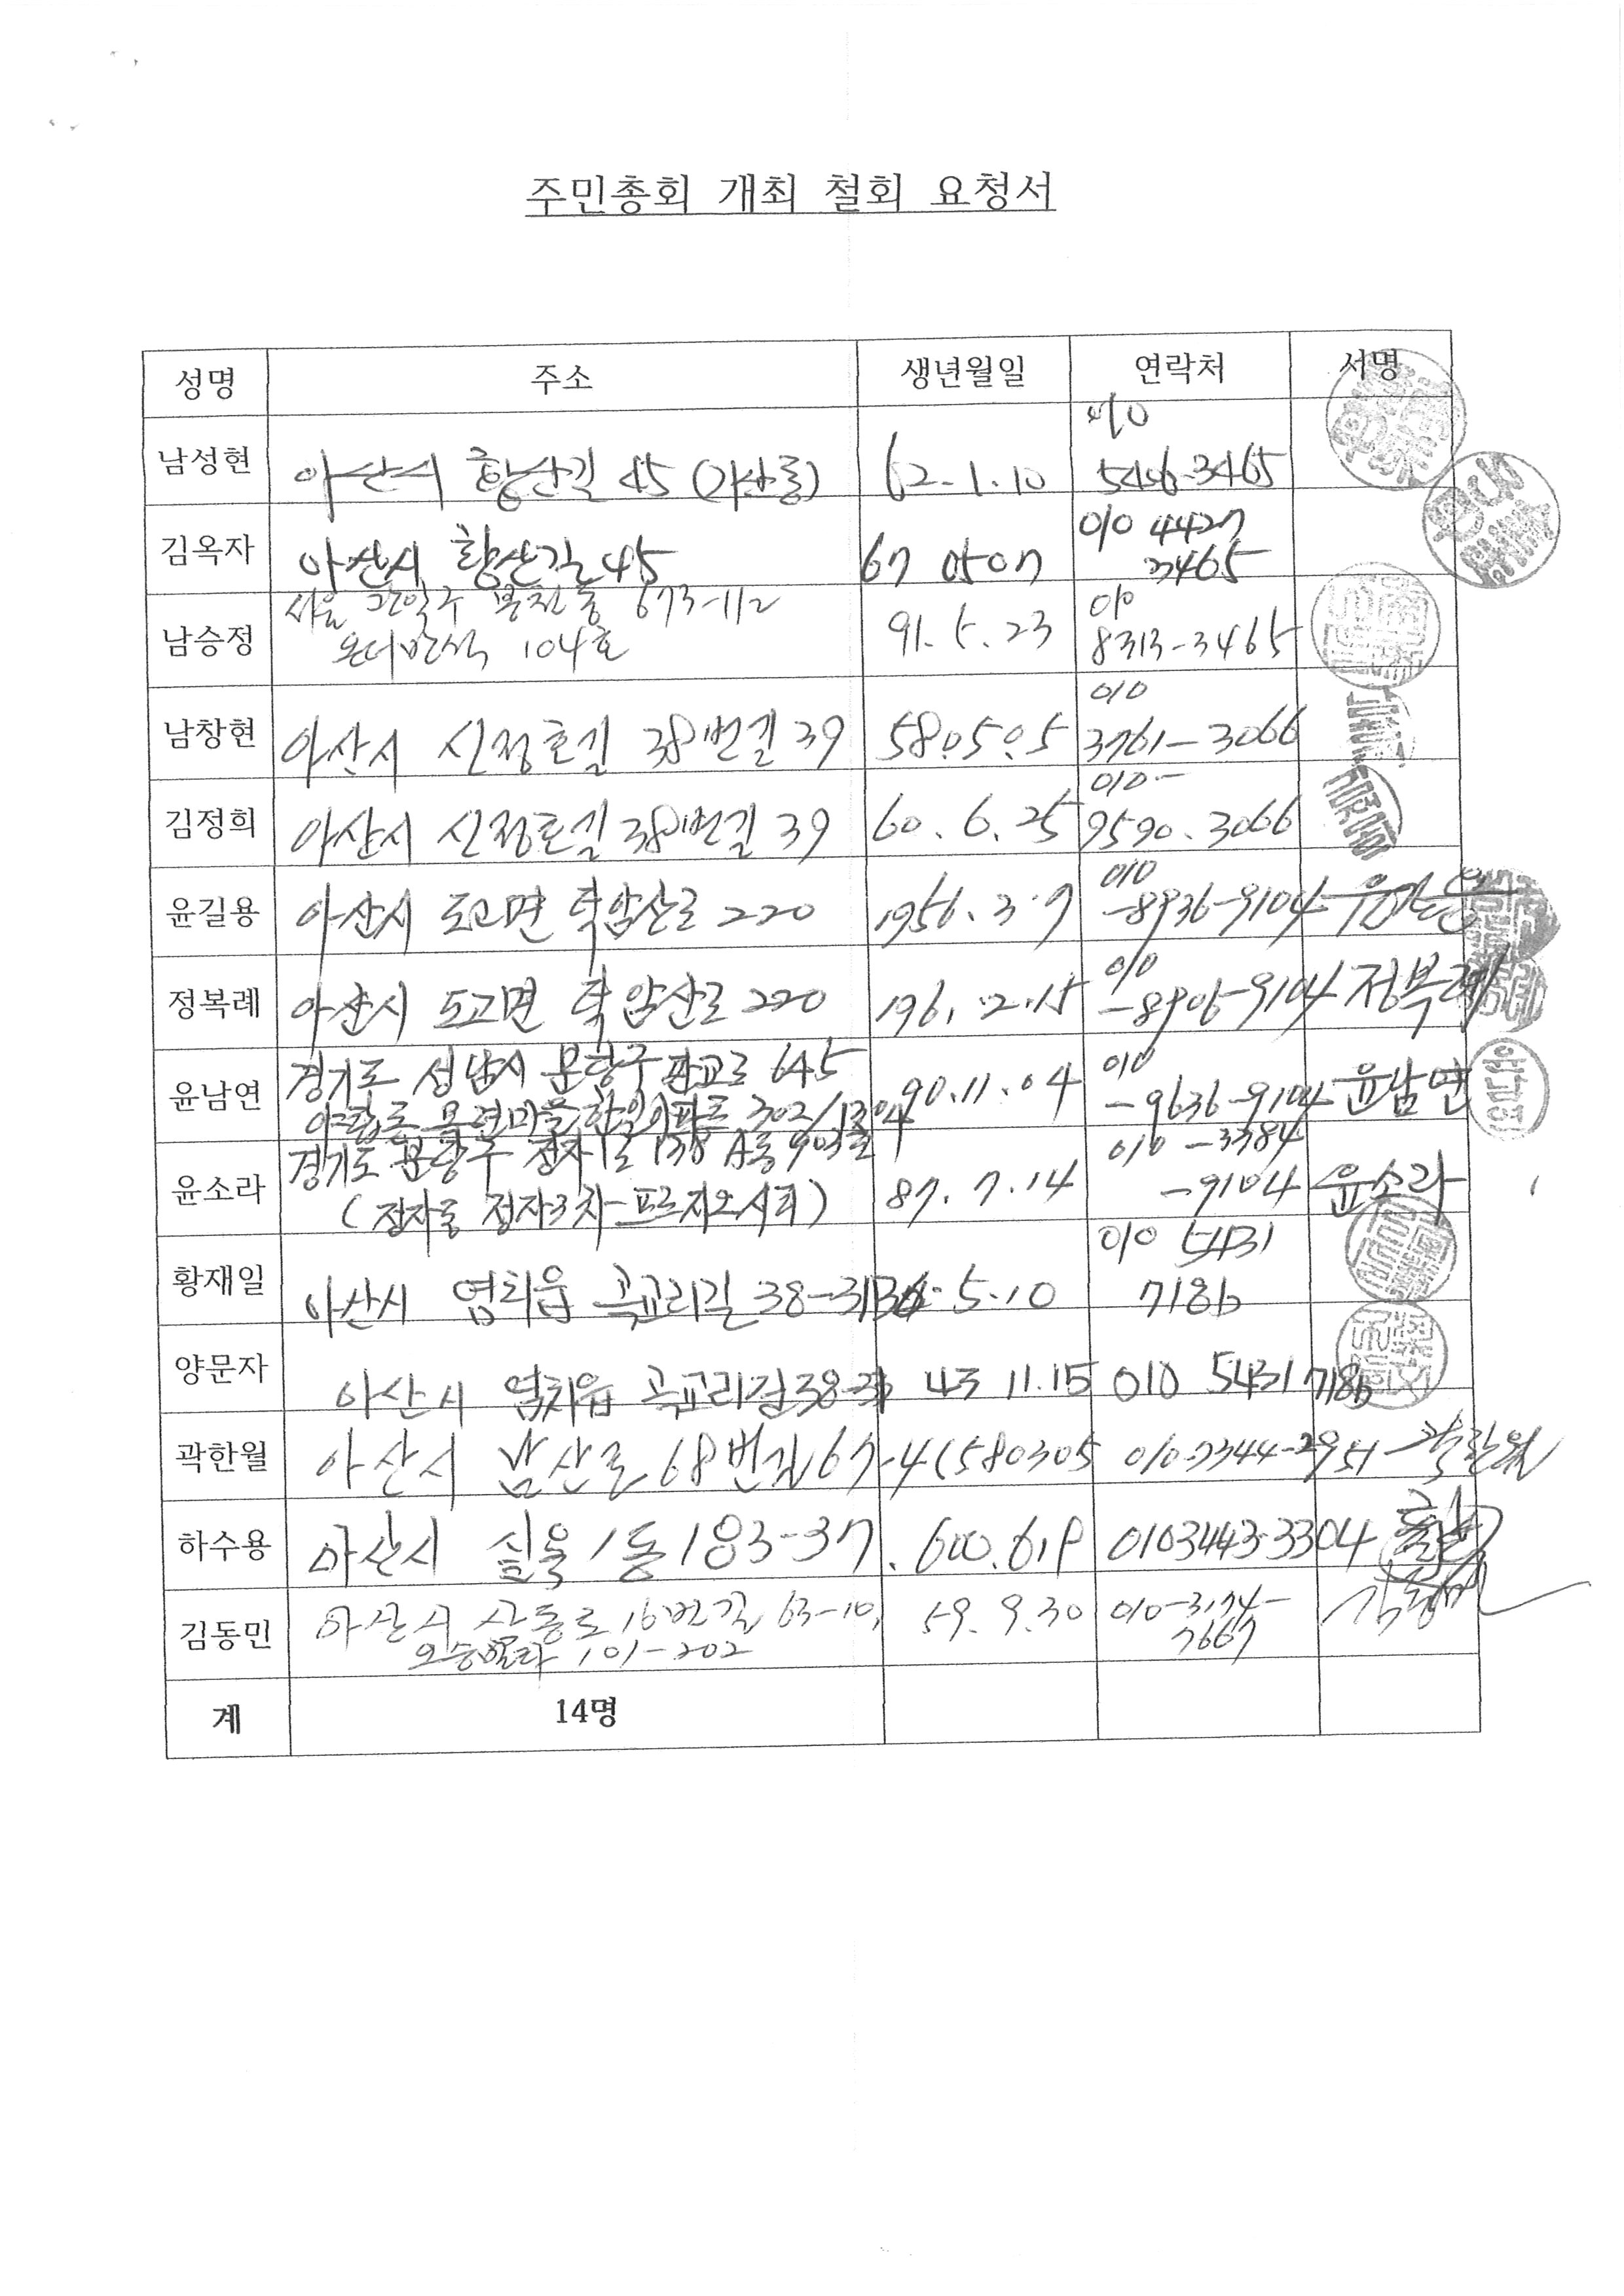 주민총회 개최 철회 요청서
성명 주소 생년월일 연락처 서명
남성현 아산시 황산길 45 62.1.10 010
5456-3465
김옥자 아산시 황산길 45 67 0507 010 4427
3465
남승정 서울 673-112 91.5.23 010
104호 8313-3465
남창현 아산시 신정호길 38번길 39 58.5.5 010
3761-3066
김정희 아산시 신정호길 38번길 39 60.6.25 010-
9590.3066
윤길용 아산시 도고면 덕암산로 220 1956.3.9 010
-8936-9104 윤길용
정복례 아산시 도고면 덕암산로 220 010
-8905-9104 정복례
윤남연 경기도 성남시 분당구 판교로 645 90.11.04 010
야탑동 목련마을한일아파트 302/1304 -9636-9104 윤남연
윤남연
윤소라 경기도 분당구 정자일로 138 A동 87.7.14 010-3784
(정자동 정자3차-푸르지오시티) -9104 윤소라
황재일 아산시 염치읍 곡교리길 38-31 5.10 010 5431
7186
양문자 아산시 염치읍 곡교리길 38-31 43 11.15 010 5431 7186
곽한월 아산시 남산로 68번길 67-4 580305 010-7344-2951 곽한월
하수용 아산시 실옥1동 183-37 010 3443-3304
김동민 아산시 16번길 63-10, 59.9.30 010-3174-
101-202 7667
계 14명